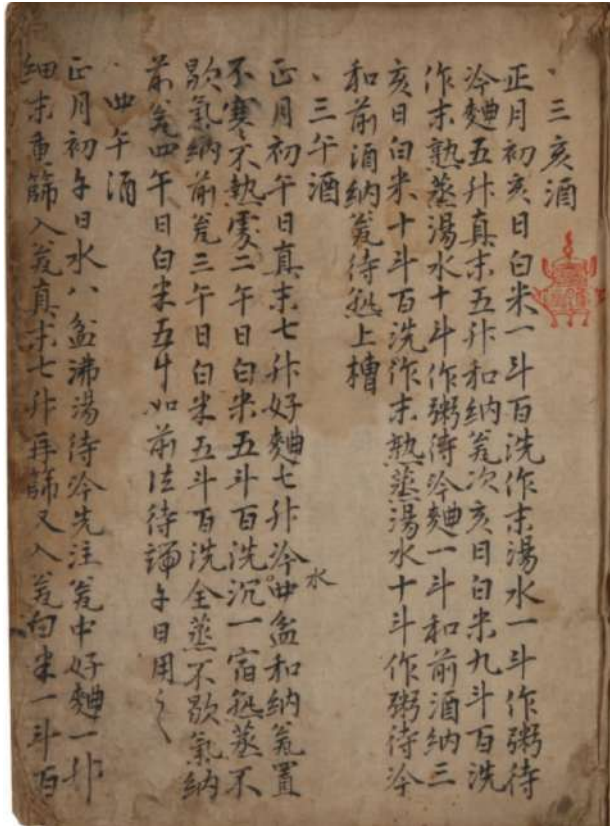 、三亥酒
正月初亥日白米一斗百洗作末湯水一斗作粥待
冷麯五升真末五升和納瓮次亥日白米九斗百洗
作末熟蒸湯水十斗作粥待冷麯一斗和前酒納三
亥日白米十斗百洗作末熟蒸湯水十斗作粥待冷
和前酒納瓮待熟上槽
、三午酒
正月初午日真末七升好麯七升冷水四盆和納瓮置
不寒不熱處二午日白米五斗百洗沉一宿熟蒸不
歇氣納前瓮三午日白米五斗百洗全蒸不歇氣納
前瓮四午日白米五斗如前法待端午日用之
、四午酒
正月初午日水八盆沸湯待冷先注瓮中好麯一升
細末重篩入瓮真末七升再篩又入瓮白米一斗百